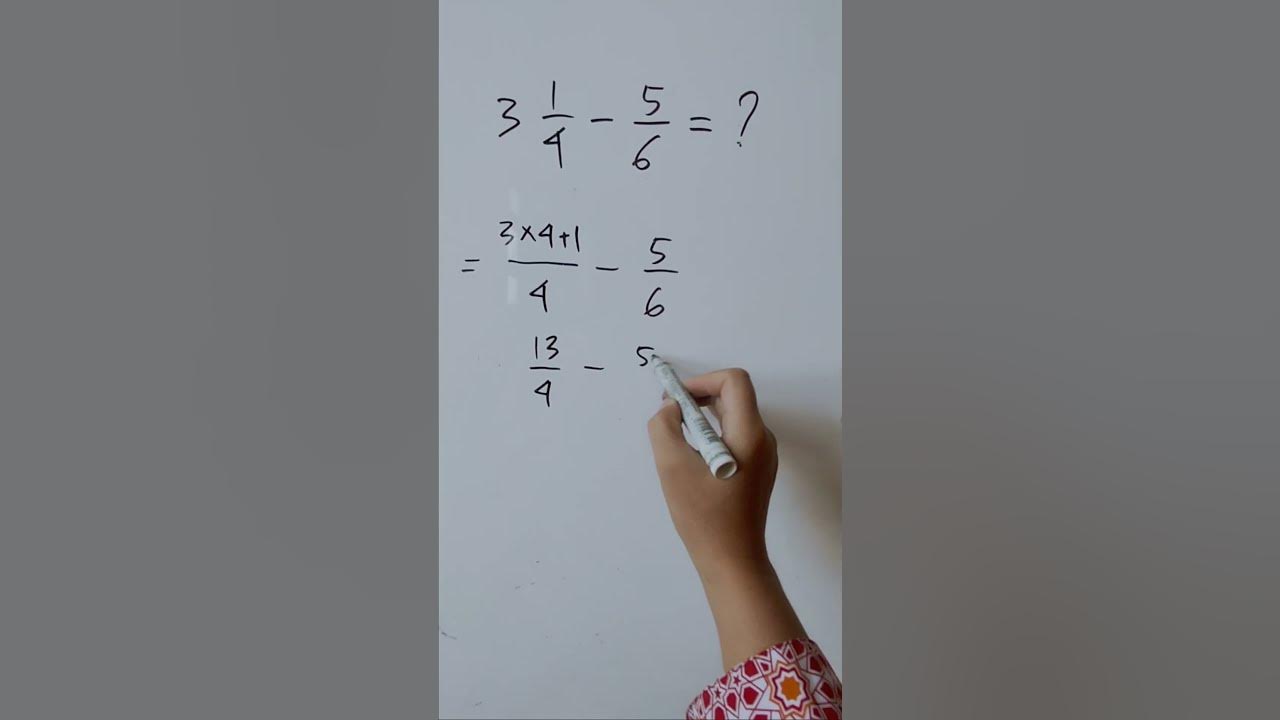 3 1/4 - 5/6 = ?
= 3×4+1/4 - 5/6
13/4 - 5